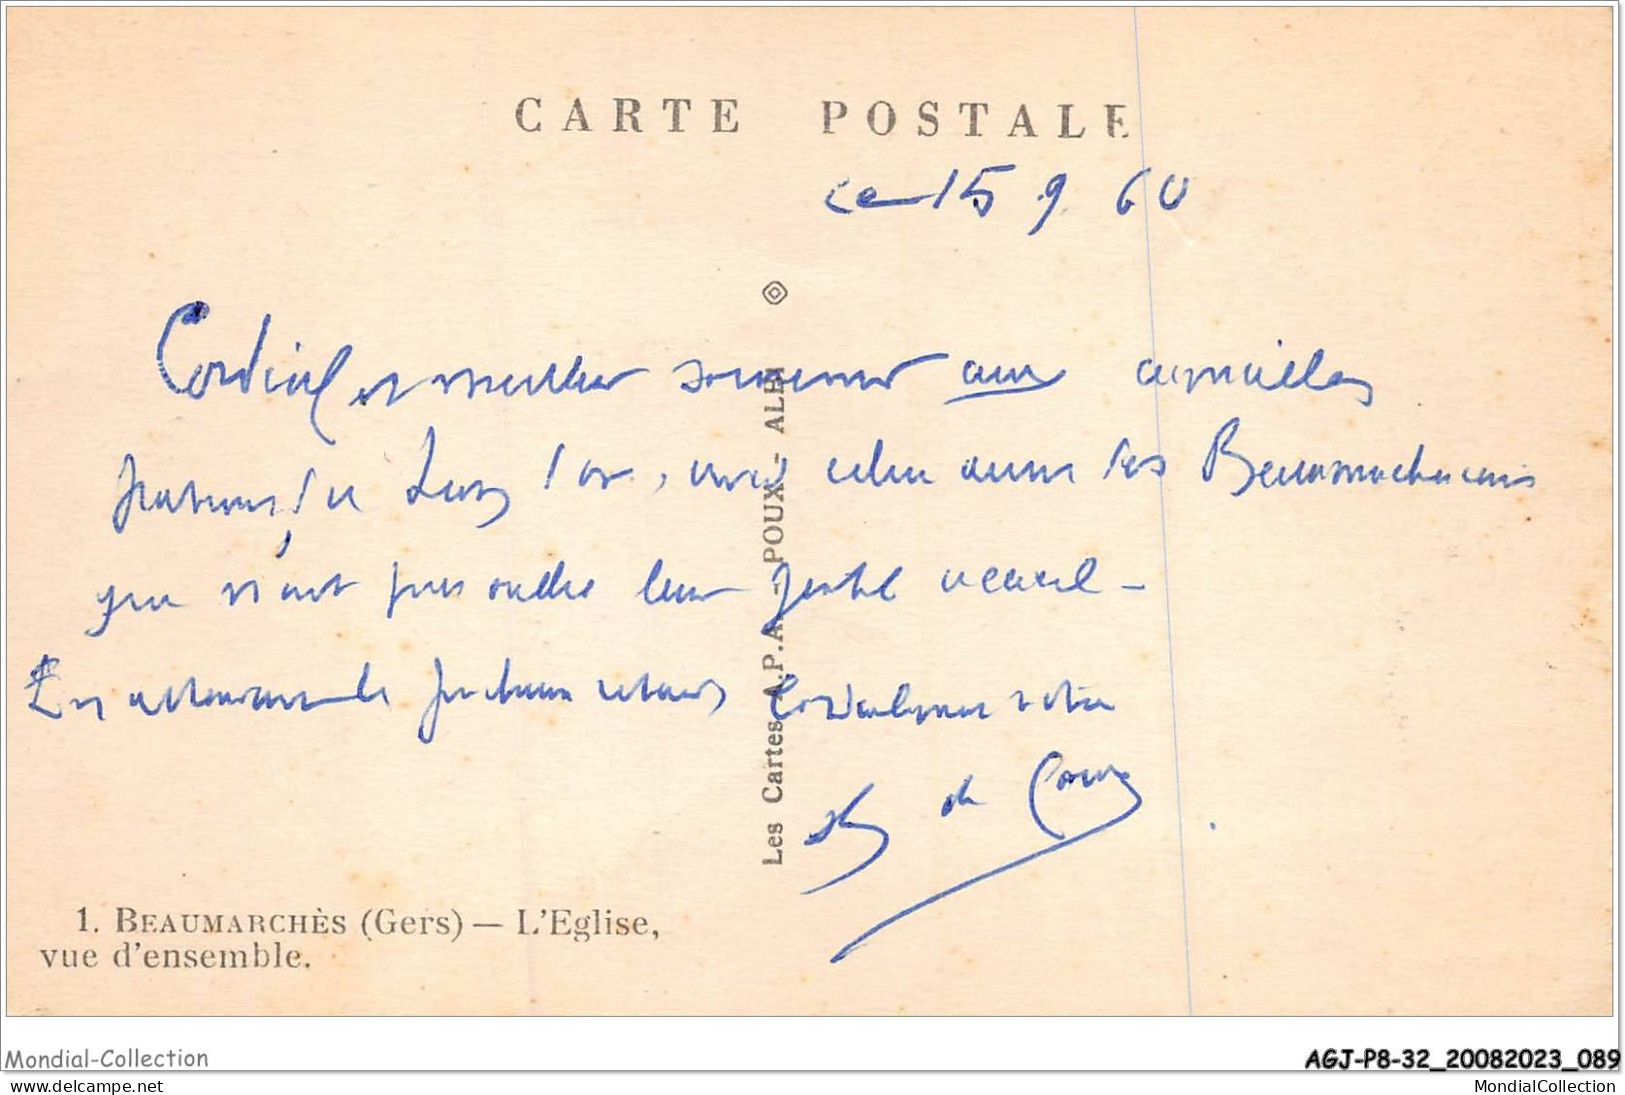 CARTE POSTALE
ce 15 9 60
Cordial et meilleur souvenir aux
du Lion d'or, avec celui aussi des Beaumarchais
qui n'ont pas oublié leur gentil accueil -
En attendant le prochain Cordialement votre
de
Les Cartes A.P.A. - POUX - ALBI
1. BEAUMARCHÈS (Gers) — L'Eglise,
vue d'ensemble.
Mondial-Collection
AGJ-P8-32_20082023_089
www.delcampe.net
MondialCollection